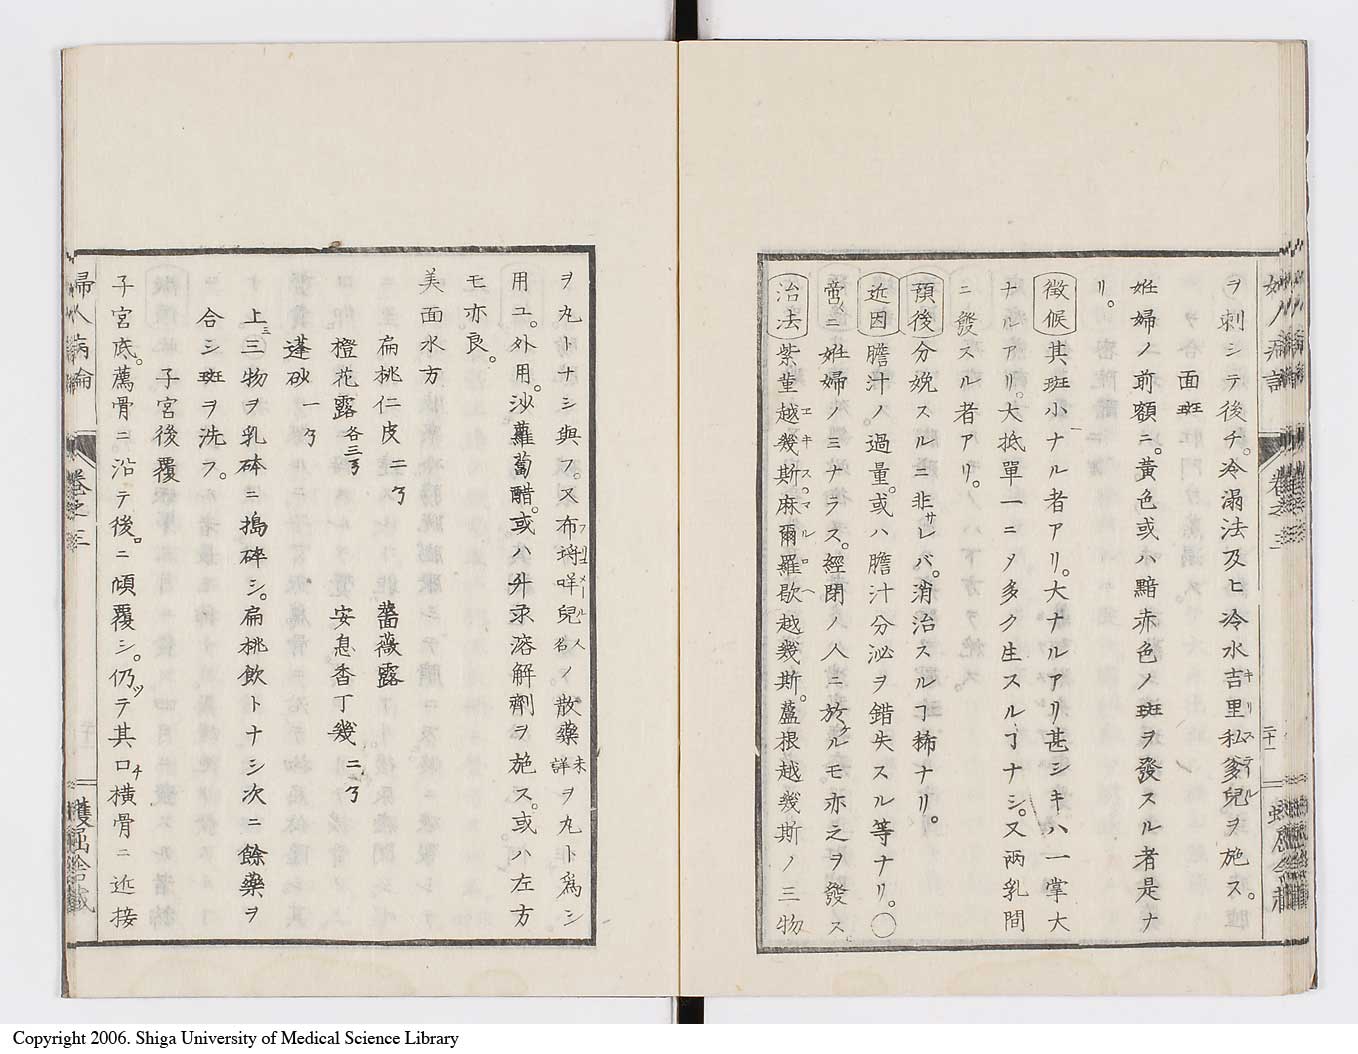 ヲ刺シテ後チ。冷溻法及ヒ冷水吉里私爹兒ヲ施ス。
面斑
姙婦ノ前額ニ。黃色或ハ黯赤色ノ斑ヲ發スル者是ナ
リ。
徵候 其斑小ナル者アリ。大ナルアリ甚シキハ一掌大
ナルアリ。大抵單一ニノ多ク生スルヿナシ。又兩乳間
ニ發スル者アリ。
預後 分娩スルニ非サレバ。消治スルヿ稀ナリ。
近因 膽汁ノ過量。或ハ膽汁分泌ヲ錯失スル等ナリ。〇
常ニ姙婦ノミナラス。經閉ノ人ニ於ルモ亦之ヲ發ス
治法 紫菫越幾斯。麻爾羅歇越幾斯。藍根越幾斯ノ三物
ヲ丸トナシ與フ。又布㙊咩兒人名ノ散藥未詳ヲ丸ト爲シ
用ユ。外用。沙蘿蔔醋。或ハ升汞溶解劑ヲ施ス。或ハ左方
モ亦良。
美面水方
扁桃仁皮 二ゟ 薔薇露
橙花露 各三ゟ 安息香丁幾 二ゟ
蓬砂 一ゟ
上三物ヲ乳砵ニ搗碎シ。扁桃飮トナシ次ニ餘藥ヲ
合シ斑ヲ洗フ。
子宮後覆
子宮底。薦骨ニ沿テ後ニ傾覆シ。仍テ其口橫骨ニ近接
婦人病論 卷之三
Copyright 2006. Shiga University of Medical Science Library